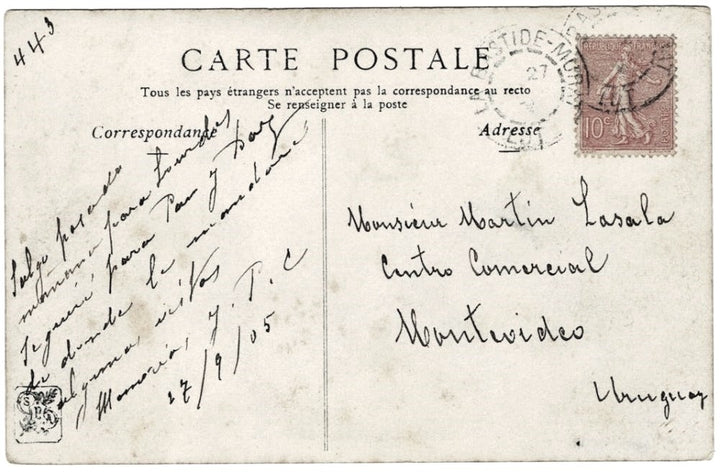 443
CARTE POSTALE
Tous les pays étrangers n'acceptent pas la correspondance au recto
Se renseigner à la poste
Correspondance
Adresse
LABASTIDE-MURAT
27
LOT
RÉPUBLIQUE FRANÇAISE
10c
LOT
Salgo pasado
mañana para Lourdes
seguiré para Pau y Dax
de donde le mandaré
algunas vistas
Memorias, y. P. C
27/9/05
Monsieur Martin Lasala
Centro Comercial
Montevideo
Uruguay